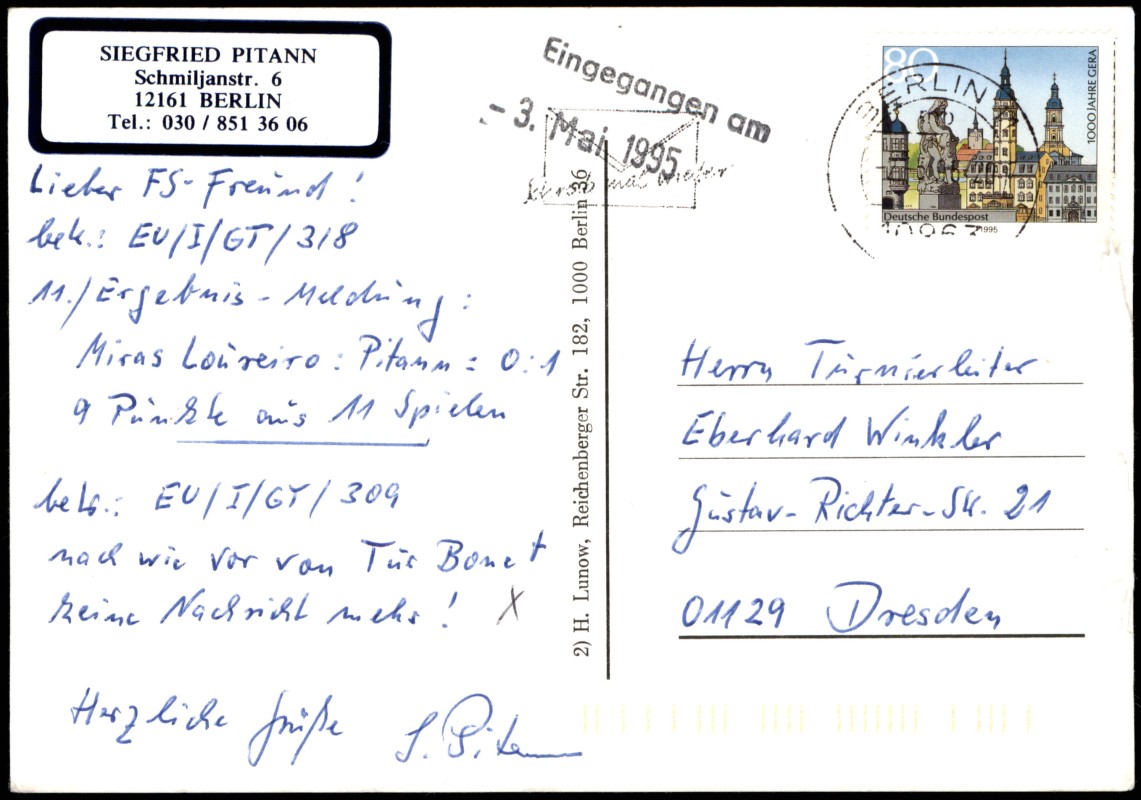 SIEGFRIED PITANN
Schmiljanstr. 6
12161 BERLIN
Tel.: 030 / 851 36 06
Lieber FS-Freund!
betr.: EU/I/GT/318
11./Ergebnis-Meldung:
Miras Loureiro : Pitann = 0:1
9 Punkte aus 11 Spielen
betr.: EU/I/GT/309
nach wie vor von Tur Bonet
keine Nachricht mehr! X
Herzliche Grüße S. Pitann
Eingegangen am
- 3. Mai 1995
Schreib mal wieder
2) H. Lunow, Reichenberger Str. 182, 1000 Berlin 36
80
BERLIN
1000 JAHRE GERA
Deutsche Bundespost
1995
10963
Herrn Turnierleiter
Eberhard Winkler
Gustav-Richter-Str. 21
01129 Dresden